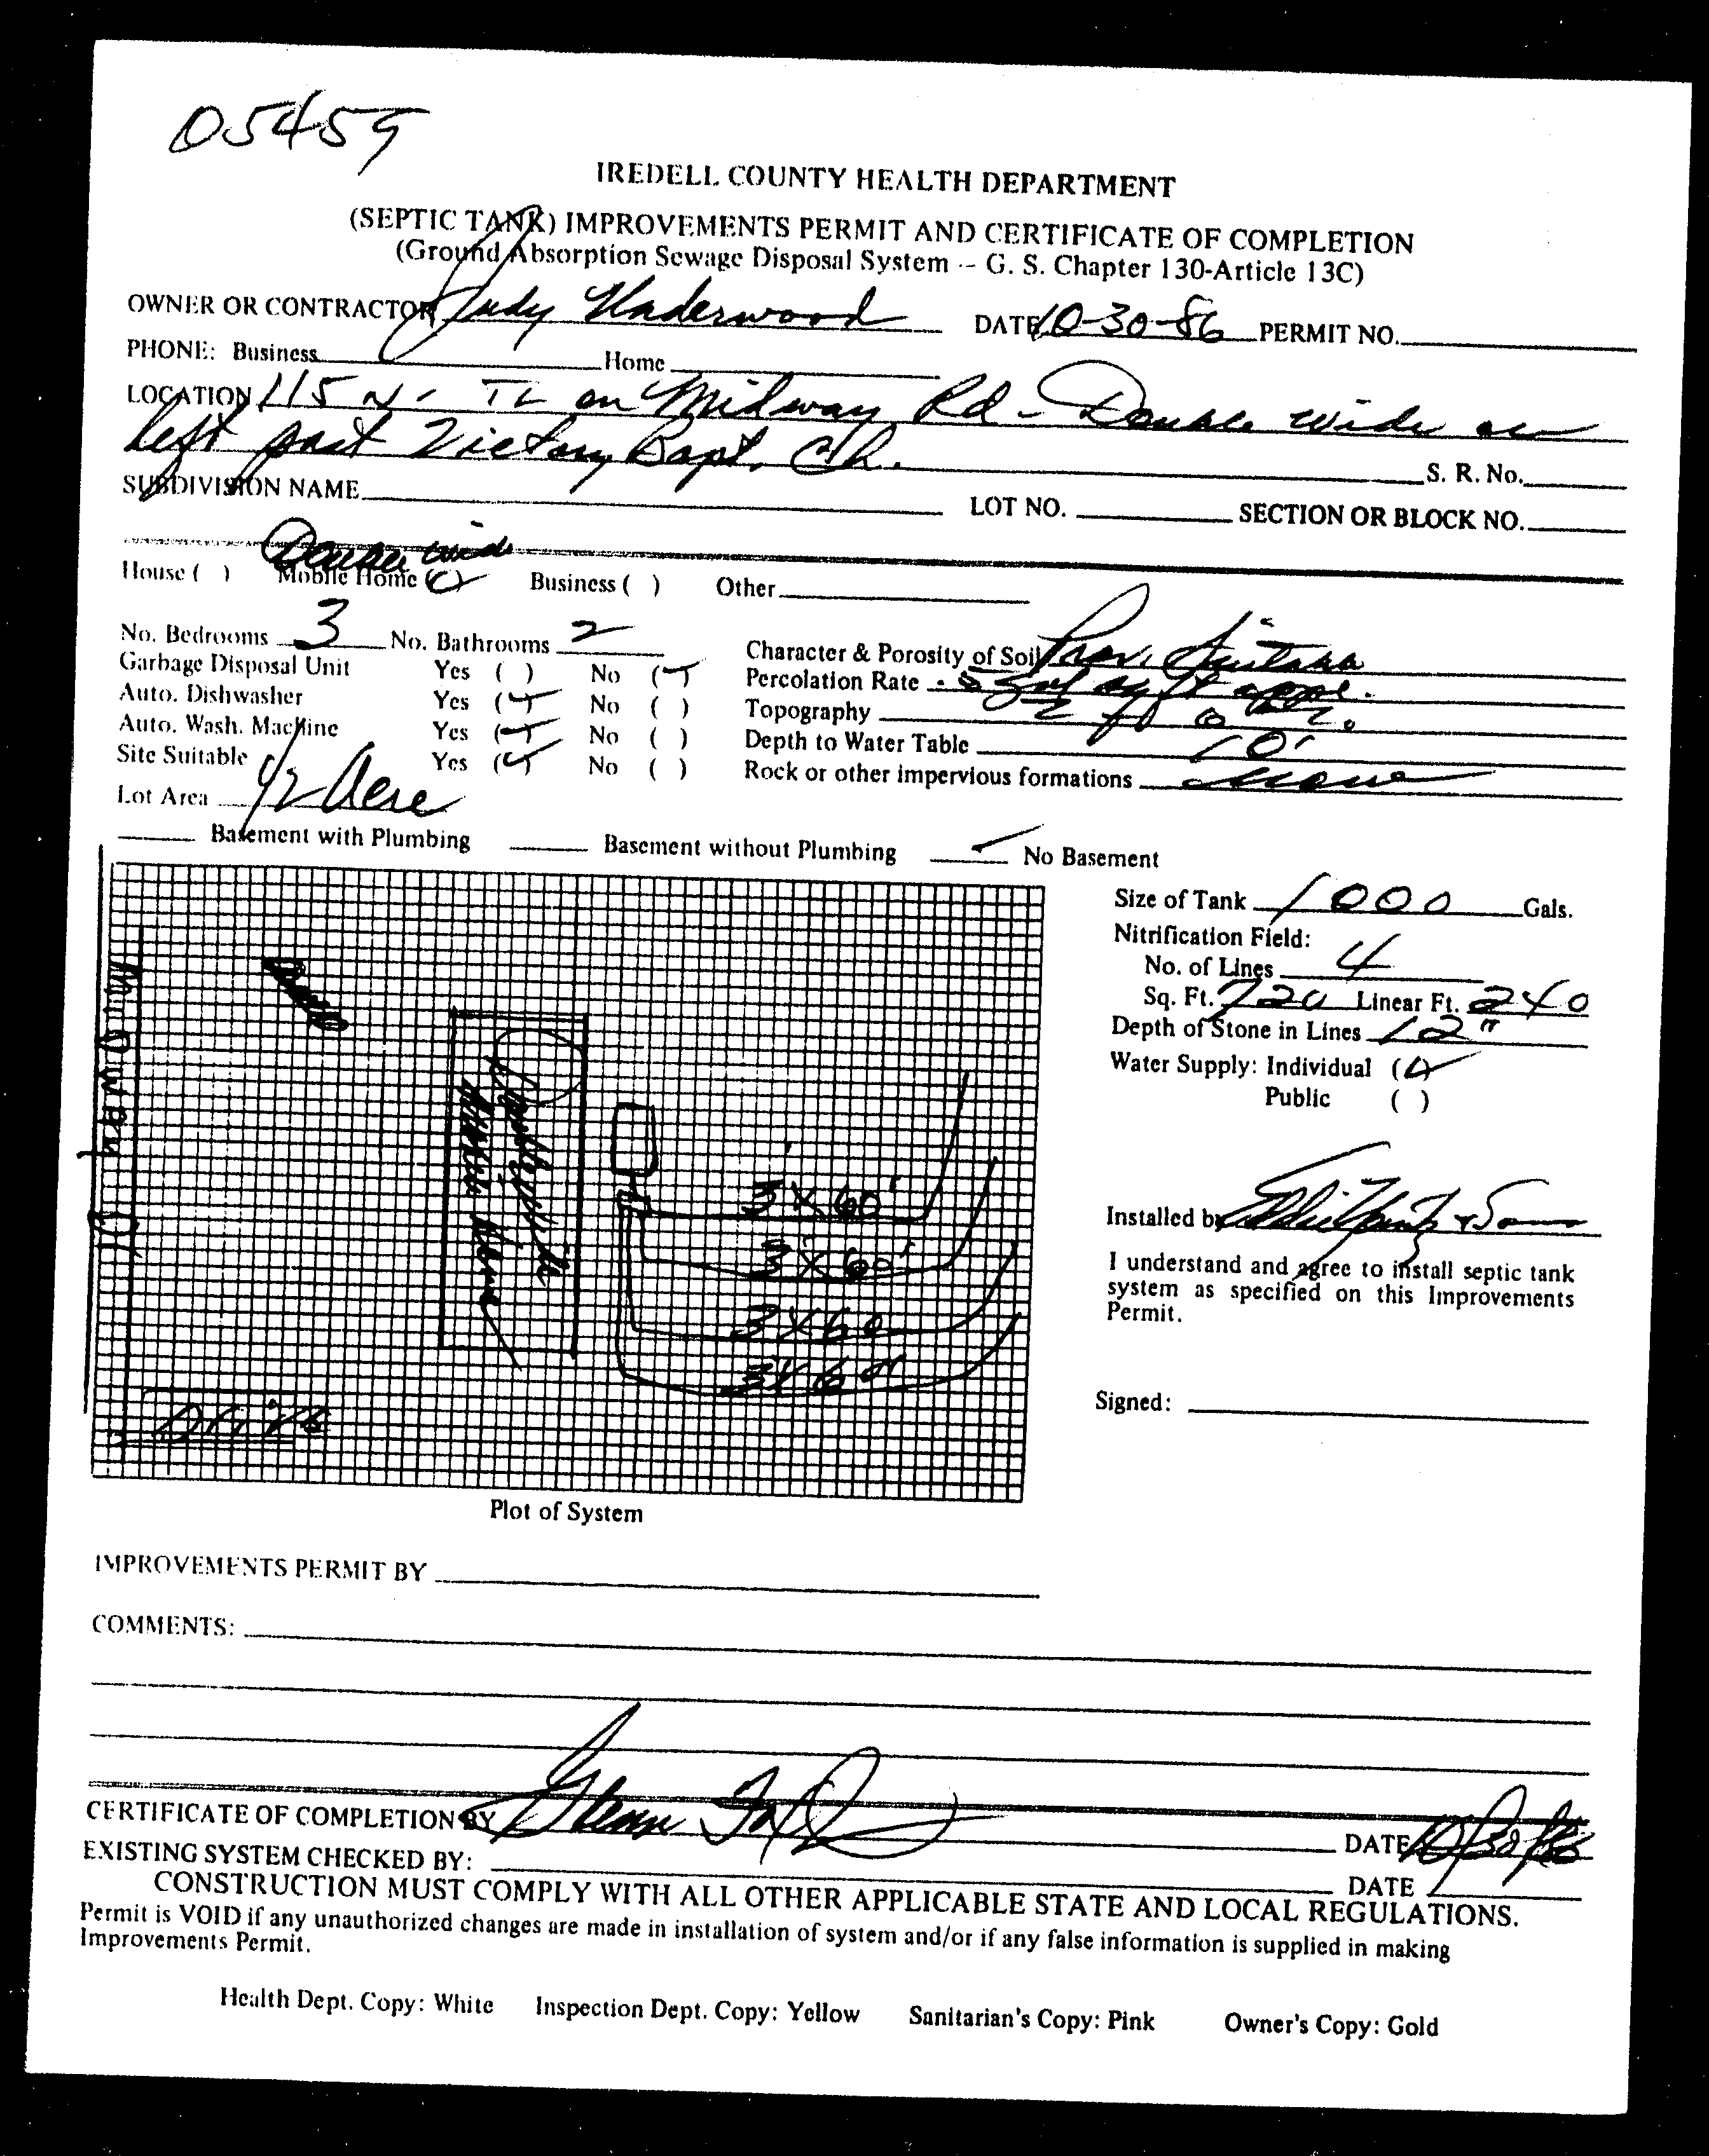 05459
IREDELL COUNTY HEALTH DEPARTMENT
(SEPTIC TANK) IMPROVEMENTS PERMIT AND CERTIFICATE OF COMPLETION
(Ground Absorption Sewage Disposal System -- G. S. Chapter 130-Article 13C)
OWNER OR CONTRACTOR Judy Underwood DATE 10-30-86 PERMIT NO.
PHONE: Business Home
LOCATION 115 N. TL on Midway Rd - Double wide on
left past Victory Bapt. Ch. S. R. No.
SUBDIVISION NAME LOT NO. SECTION OR BLOCK NO.
Double wide
House ( ) Mobile Home (✓) Business ( ) Other
No. Bedrooms 3 No. Bathrooms 2 Character & Porosity of Soil Prov. Suitable
Garbage Disposal Unit Yes ( ) No (✓) Percolation Rate
Auto. Dishwasher Yes (✓) No ( ) Topography
Auto. Wash. Machine Yes (✓) No ( ) Depth to Water Table 10'
Site Suitable Yes (✓) No ( ) Rock or other impervious formations none
Lot Area 1/2 Acre
Basement with Plumbing Basement without Plumbing ✓ No Basement
Size of Tank 1000 Gals.
Nitrification Field:
No. of Lines 4
Sq. Ft. 720 Linear Ft. 240
Depth of Stone in Lines 12"
Water Supply: Individual (✓)
Public ( )
Midway Rd
Doublewide
Mobile Home
3 X 60'
3 X 60'
3 X 60
3 X 60'
Drive
Installed by & Sons
I understand and agree to install septic tank
system as specified on this Improvements
Permit.
Signed:
Plot of System
IMPROVEMENTS PERMIT BY
COMMENTS:
CERTIFICATE OF COMPLETION BY Glenn DATE 10/30/86
EXISTING SYSTEM CHECKED BY: DATE
CONSTRUCTION MUST COMPLY WITH ALL OTHER APPLICABLE STATE AND LOCAL REGULATIONS.
Permit is VOID if any unauthorized changes are made in installation of system and/or if any false information is supplied in making
Improvements Permit.
Health Dept. Copy: White Inspection Dept. Copy: Yellow Sanitarian's Copy: Pink Owner's Copy: Gold